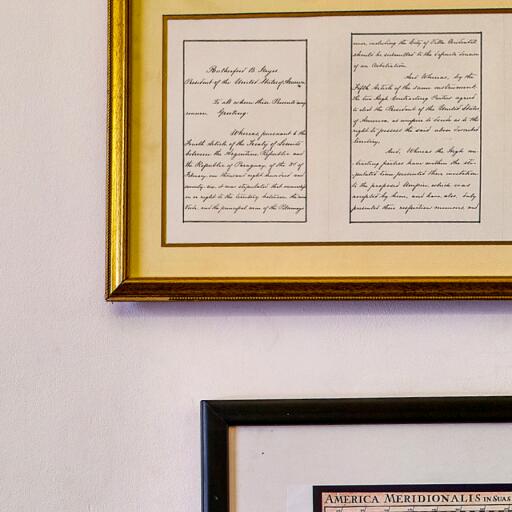 Rutherford B. Hayes
President of the United States of America,
To all whom these Presents may
concern Greeting:
Whereas, pursuant to the
Fourth Article of the Treaty of Limits
between the Argentine Republic and
the Republic of Paraguay of the 3d of
February, one thousand eight hundred and
seventy-six it was stipulated that ownership
or a right to the territory between the
Verde, and the principal arm of the Pilcomayo
ment, including the City of Villa Occidental
should be submitted to the definite decision
of an Arbitration
And Whereas, by the
Fifth Article of the same instrument
the two High Contracting Parties agreed
to elect the President of the United States
of America, as umpire to decide as to the
right to possess the said above described
territory.
And, Whereas the High con-
tracting parties have within the sti-
pulated time presented their invitation
to the proposed Umpire which was
accepted by him, and have, also, duly
presented their respective memoirs and
AMERICA MERIDIONALIS IN SUAS